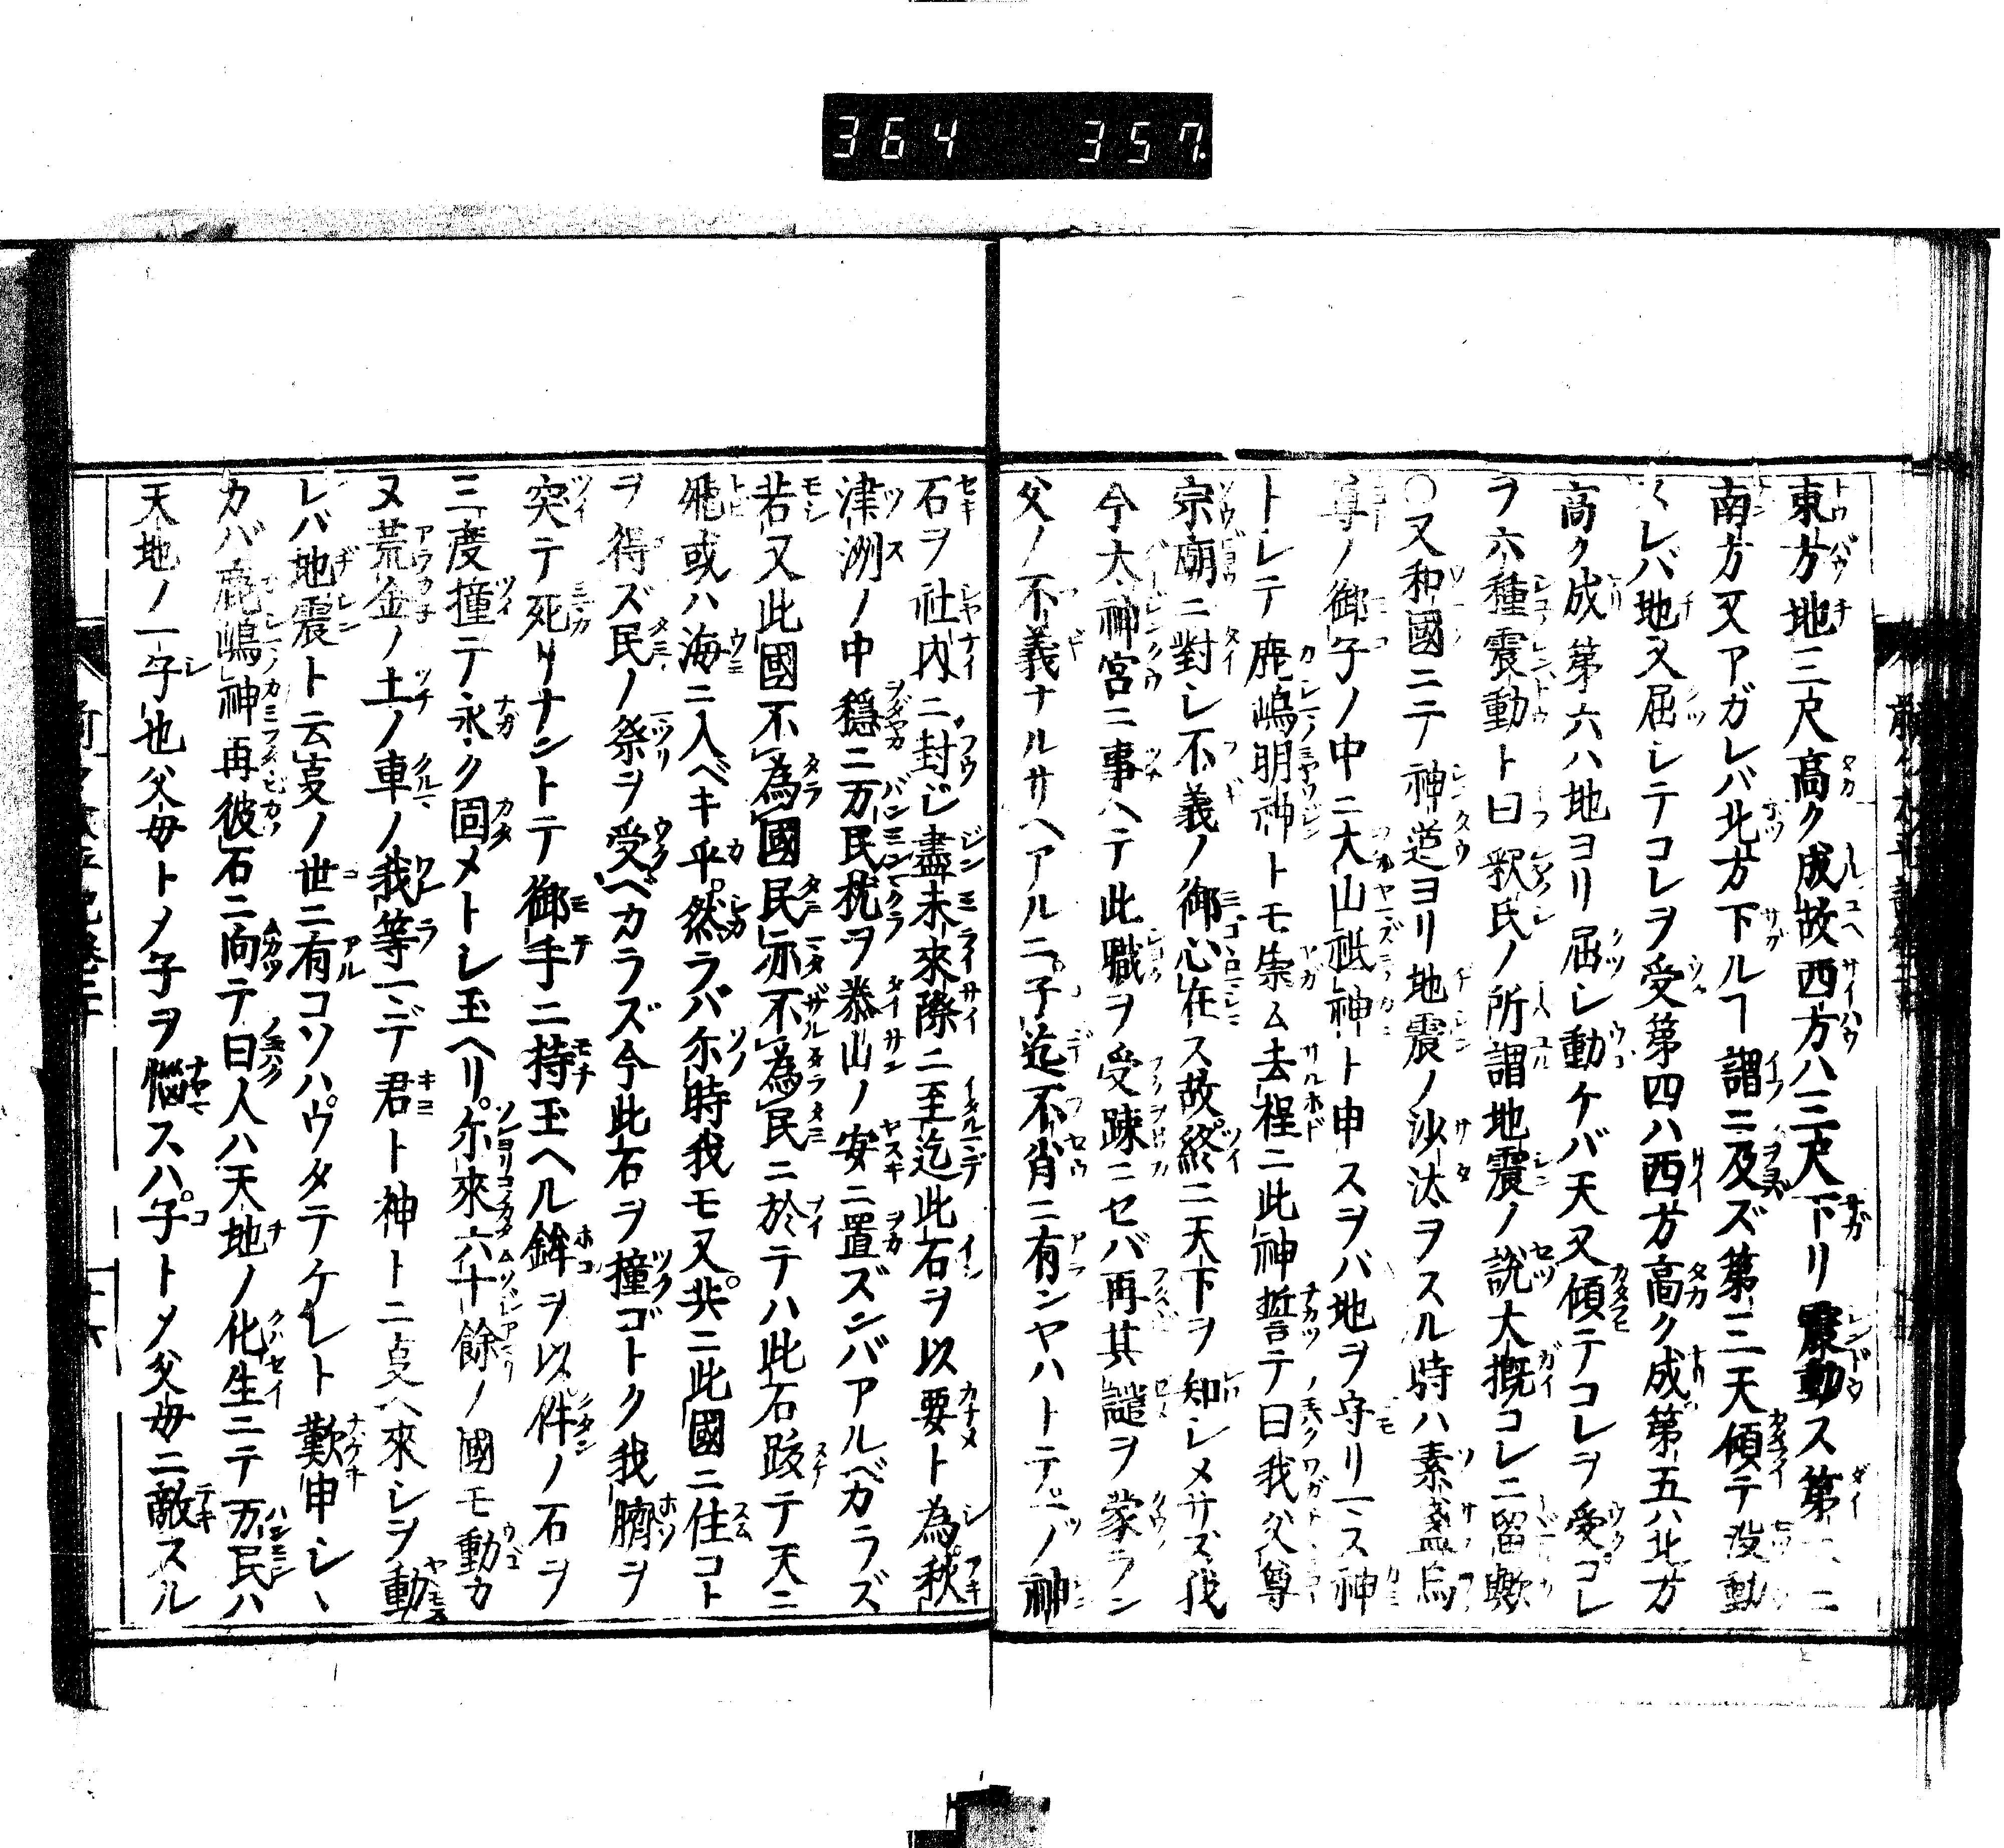 364 357
東方地三尺高ク成故西方ハ三尺下リ震動ス第二ニ
南方又アガレバ北方下ルヿ謂ニ及ズ第三天傾テ没動
スレバ地又屈シテコレヲ受第四ハ西方高ク成第五ハ北方
高ク成第六ハ地ヨリ屈シ動ケバ天又傾テコレヲ受コレ
ヲ六種震動ト曰釈氏ノ所謂地震ノ説大概コレニ留歟
○又和國ニテ神道ヨリ地震ノ沙汰ヲスル時ハ素盞烏
尊ノ御子ノ中ニ大山祇神ト申スヲバ地ヲ守リマス神
トシテ鹿嶋明神トモ崇ム去程ニ此神誓テ曰我父尊
宗廟ニ對シ不義ノ御心在ス故終ニ天下ヲ知シメサズ我
今大神宮ニ事ヘテ此職ヲ受踈ニセバ再其譴ヲ蒙ラン
父ノ不義ナルサヘアルニ子迄不肖ニ有ンヤハトテ一ツノ神
石ヲ社内ニ封ジ盡未來際ニ至迄此石ヲ以要ト為秋
津洲ノ中穏ニ万民枕ヲ泰山ノ安ニ置ズンバアルベカラズ
若又此國不為國民亦不為民ニ於テハ此石跋テ天ニ
飛或ハ海ニ入ベキ乎然ラバ尓時我モ又共ニ此國ニ住コト
ヲ得ズ民ノ祭ヲ受ベカラズ今此石ヲ撞ゴトク我臍ヲ
突テ死リナントテ御手ニ持玉ヘル鉾ヲ以件ノ石ヲ
三度撞テ永ク固メトシ玉ヘリ尓來六十餘ノ國モ動カ
ヌ荒金ノ土ノ車ノ我等マデ君ト神トニ叓ヘ來シヲ動
レバ地震ト云叓ノ世ニ有コソハウタテケレト歎申シヽ
カバ鹿嶋神再彼石ニ向テ曰人ハ天地ノ化生ニテ万民ハ
天地ノ一子也父母トメ子ヲ惱スハ子トメ父母ニ敵スル